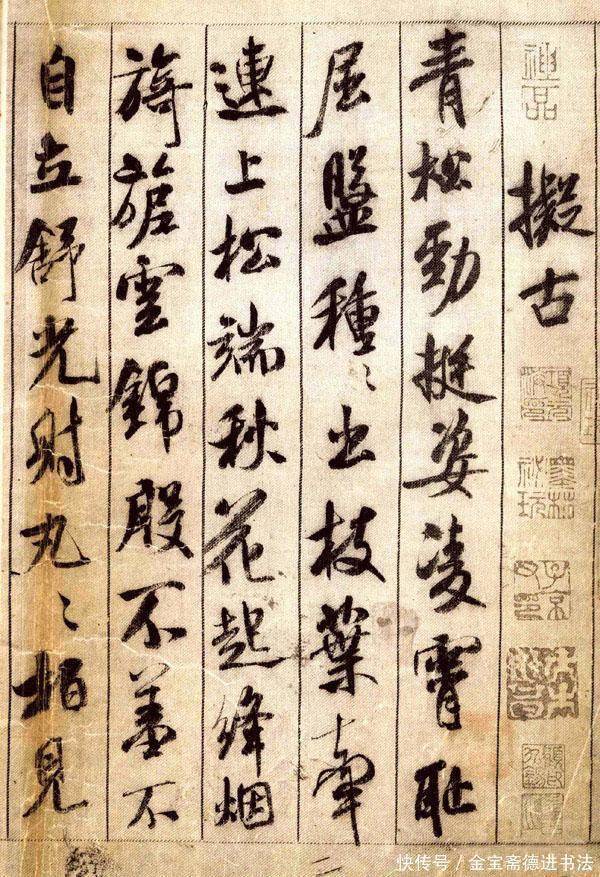 神品
擬古
青松勁挺姿凌霄恥
屈盤種〻出枝葉牽
連上松端秋花起絳烟
旖旎雲錦殷不羞不
自立舒光射丸〻柏見
快传号／金宝斋德进书法